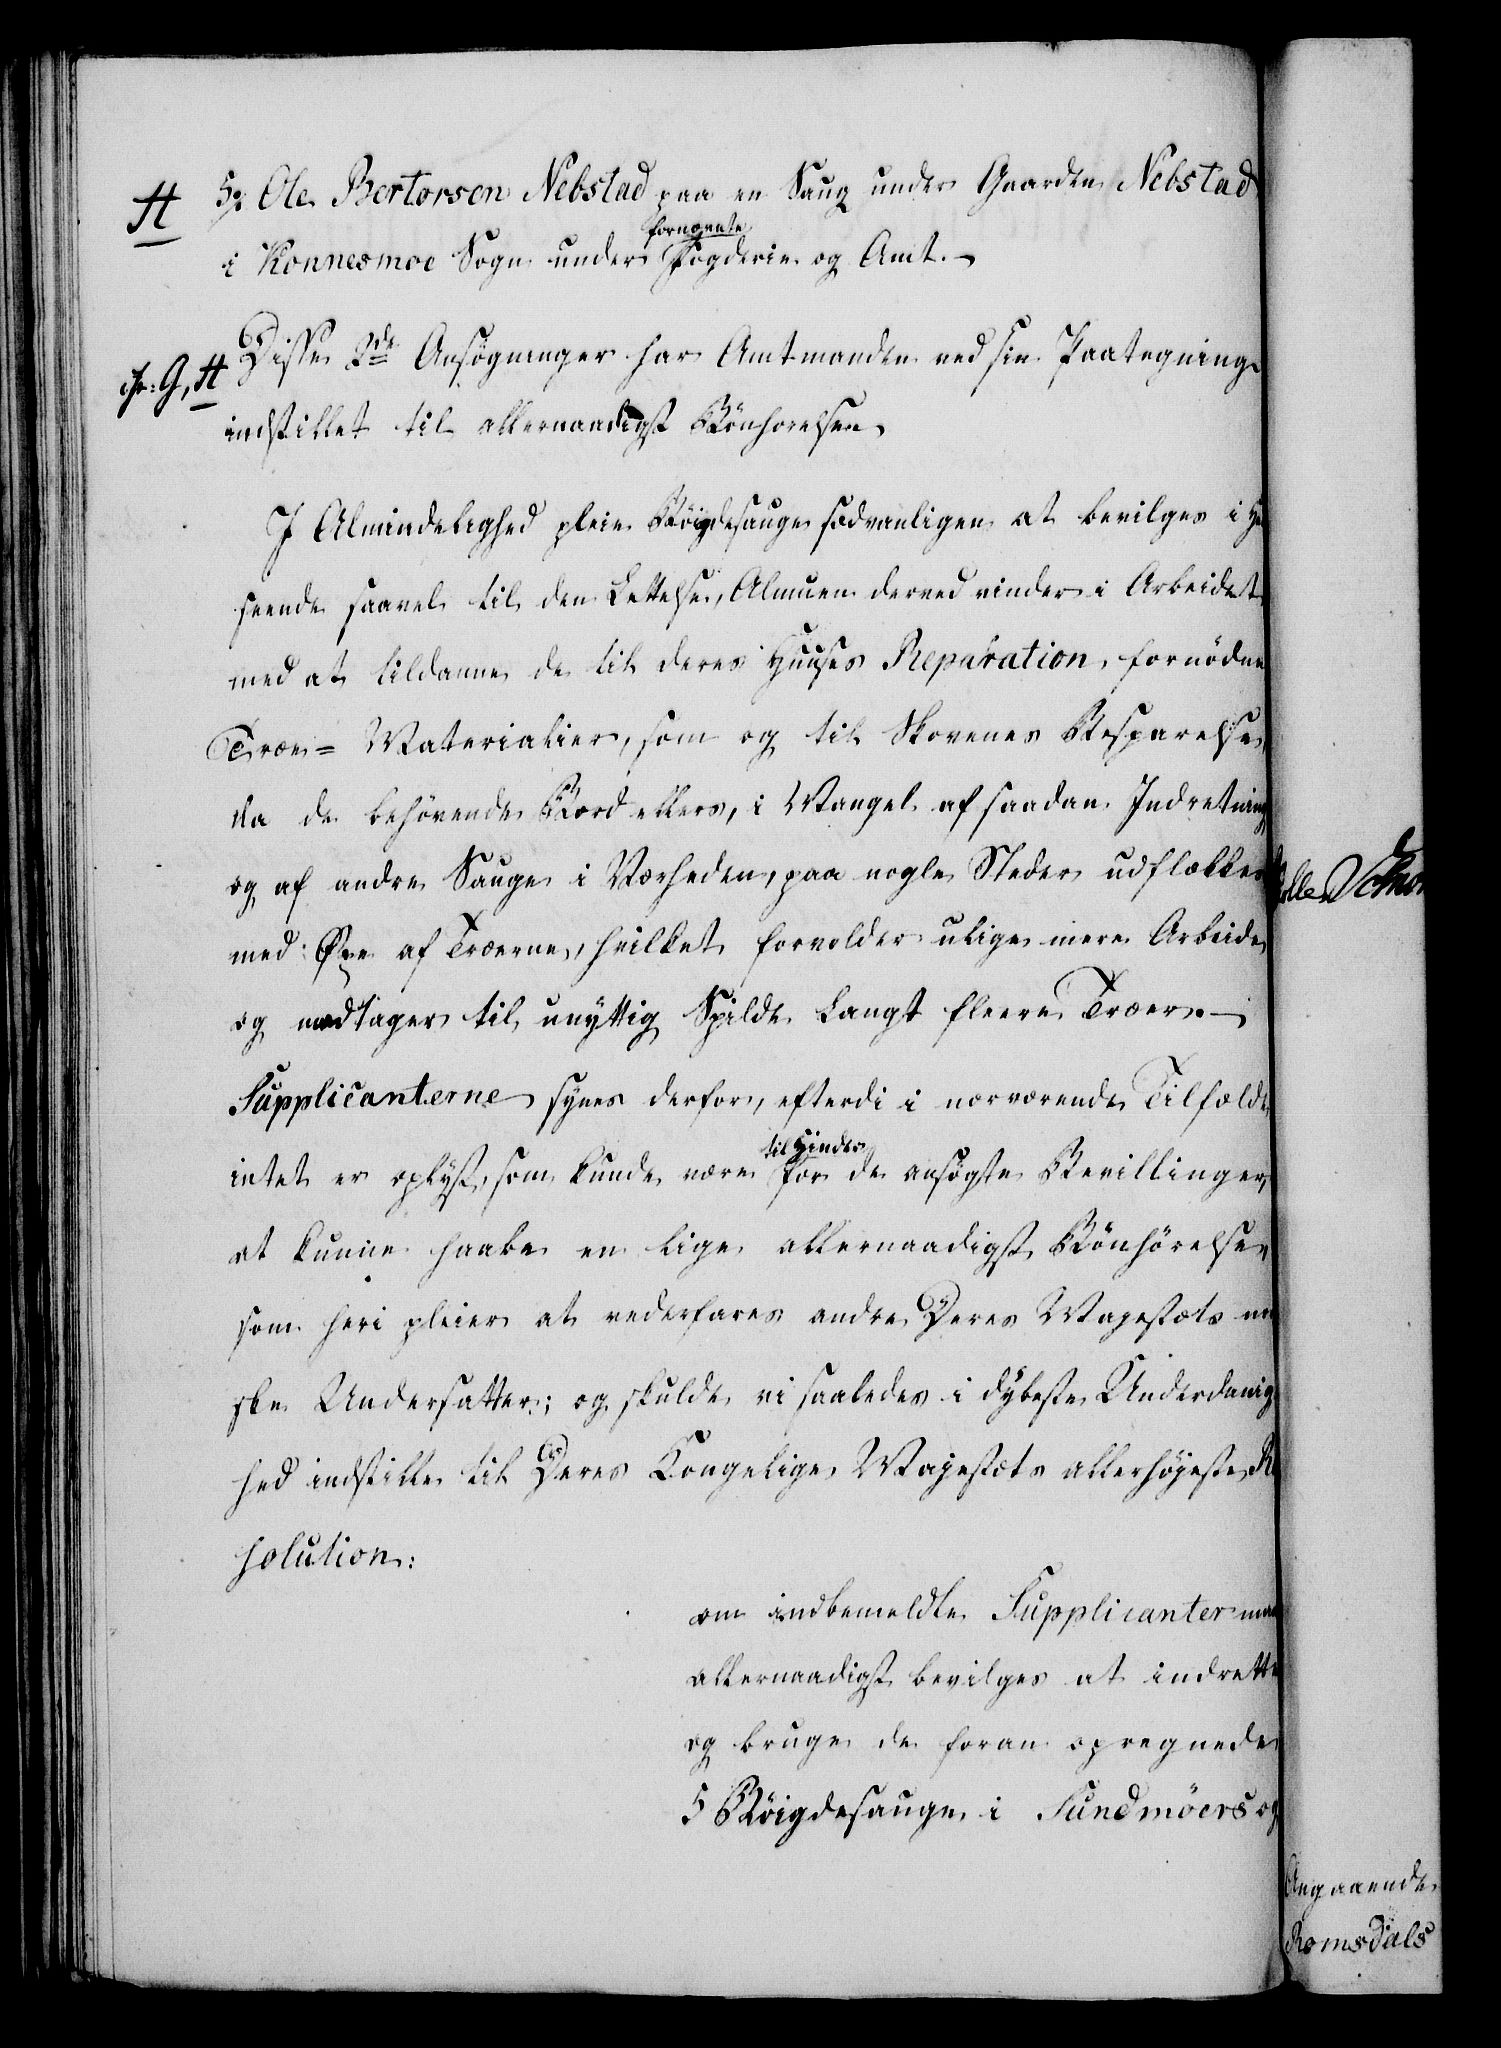 H
5., Ole Bertorsen Nebstad paa en Saug under Gaarden Nebstad
fornævnte
i Konnesmoe Sogn under Fogderie og Amt.
cfr: G, H
Disse 2de Ansøgninger har Amtmanden ved sin Paategning
indstillet til allernaadigst Bönhørelse.
I Almindelighed pleie Böigdesauge sædvanligen at bevilges i Hen
seende saavel til den Lettelse, Almuen derved vinder i Arbeidet
med at tildanne de til deres Huuses Reparation fornödne
Træe- Materialier, som og til Skovenes Besparelse,
da de behövende Bord ellers, i Mangel af saadan Indretning
og af andre Sauge i Nærheden, paa nogle Steder udflækkes
med Øxe af Træerne, hvilket forvolder ulige mere Arbeide
og medtager til unyttig Spilde langt fleere Træer.
Supplicanterne synes derfor, efterdi i nærværende Tilfælde
til Hinder
intet er oplyst, som kunde være for de ansögte Bevillinger,
at kunne haabe en lige allernaadigst Bönhörelse,
som heri pleier at vederfares andre Deres Majestæts nor
ske Undersatter; og skulde vi saaledes i dybeste Underdanig
hed indstille til Deres Kongelige Majestæts allerhöjeste Re
solution:
om indbemeldte Supplicanter maa
allernaadigst bevilges at indrette
og bruge de foran opregnede
5 Böigdesauge i Sundmöers og
Angaaende
Romsdals